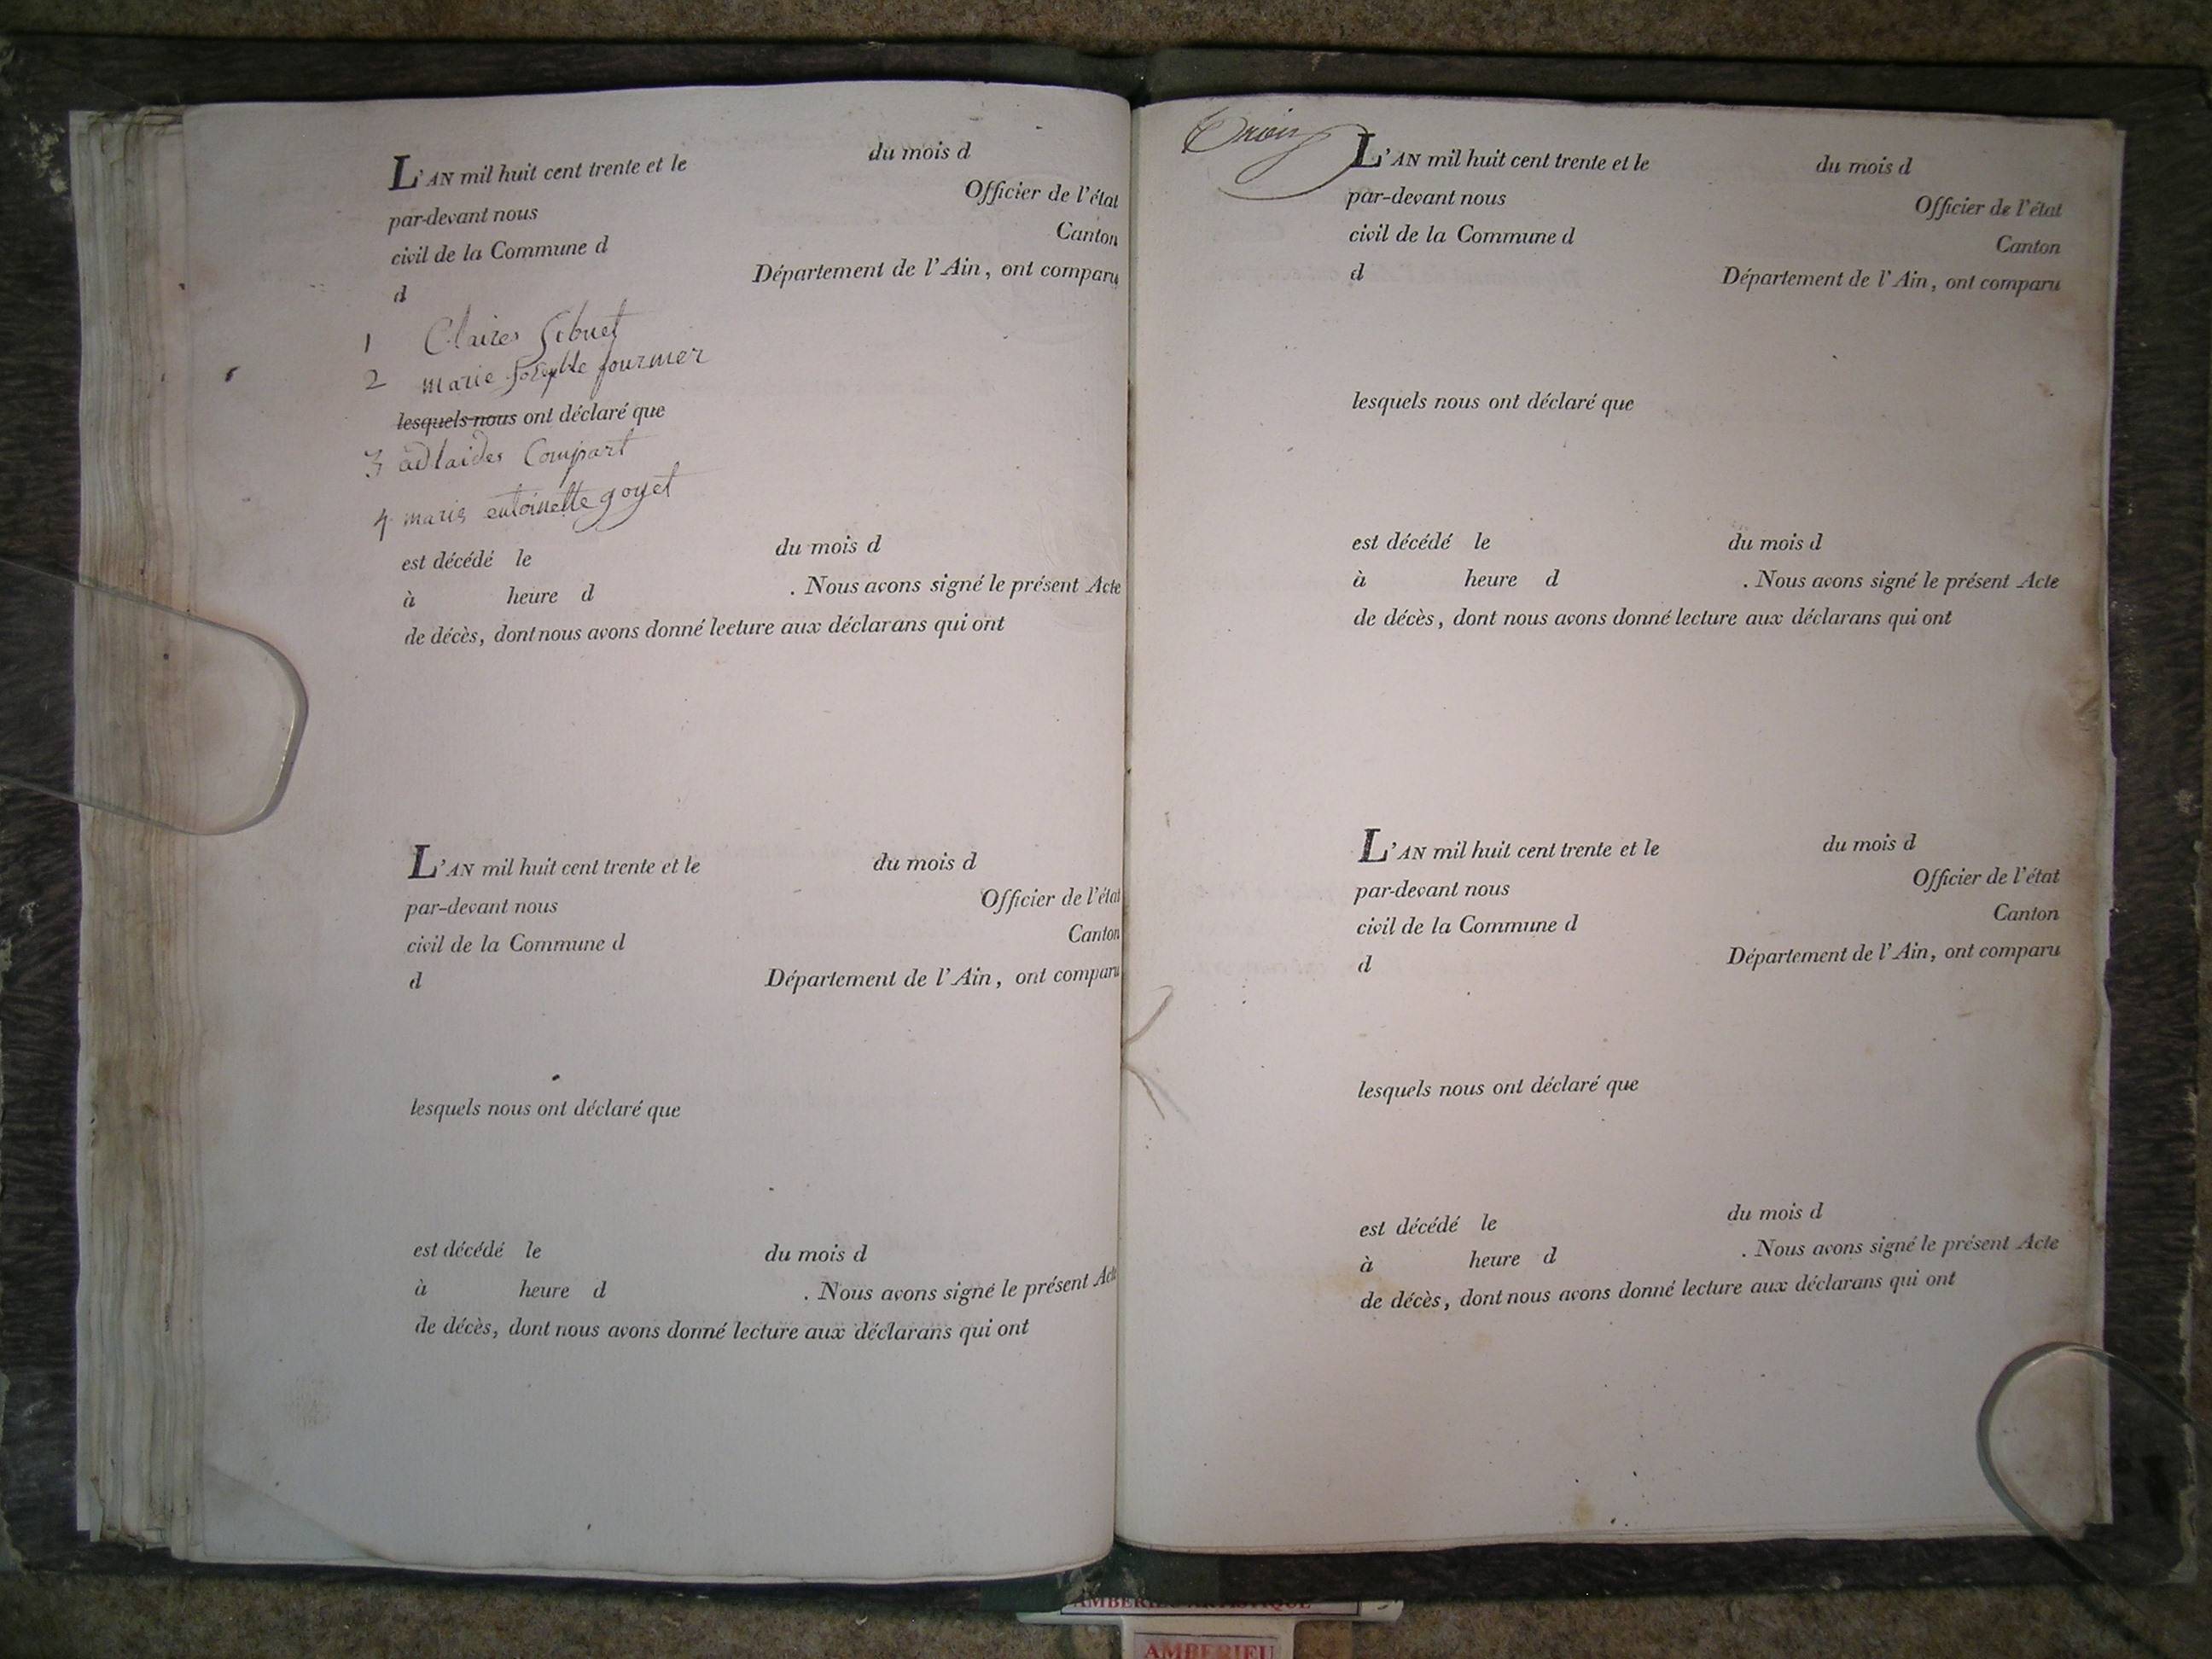 L'AN mil huit cent trente et le du mois d
par-devant nous Officier de l'état
civil de la Commune d Canton
d Département de l'Ain, ont comparu
1 Claires Sibuet
2 marie Josephte fournier
lesquels nous ont déclaré que
3 adlaides Compart
4 marie entoinette goyet
est décédé le du mois d
à heure d . Nous avons signé le présent Acte
de décès, dont nous avons donné lecture aux déclarans qui ont
L'AN mil huit cent trente et le du mois d
par-devant nous Officier de l'état
civil de la Commune d Canton
d Département de l'Ain, ont comparu
lesquels nous ont déclaré que
est décédé le du mois d
à heure d . Nous avons signé le présent Acte
de décès, dont nous avons donné lecture aux déclarans qui ont
L'AN mil huit cent trente et le du mois d
par-devant nous Officier de l'état
civil de la Commune d Canton
d Département de l'Ain, ont comparu
lesquels nous ont déclaré que
est décédé le du mois d
à heure d . Nous avons signé le présent Acte
de décès, dont nous avons donné lecture aux déclarans qui ont
L'AN mil huit cent trente et le du mois d
par-devant nous Officier de l'état
civil de la Commune d Canton
d Département de l'Ain, ont comparu
lesquels nous ont déclaré que
est décédé le du mois d
à heure d . Nous avons signé le présent Acte
de décès, dont nous avons donné lecture aux déclarans qui ont
AMBERIEU